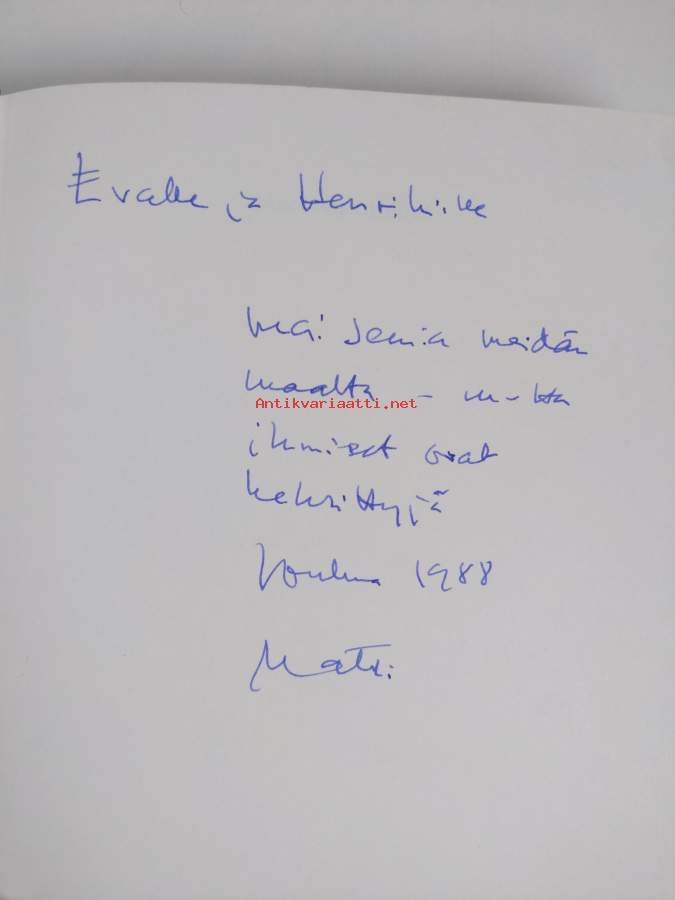 Evalle ja Henrikille
meidän
maalta – mutta
Antikvariaatti.net
ihmiset ovat
keksittyjä
Jouluna 1988
Matti